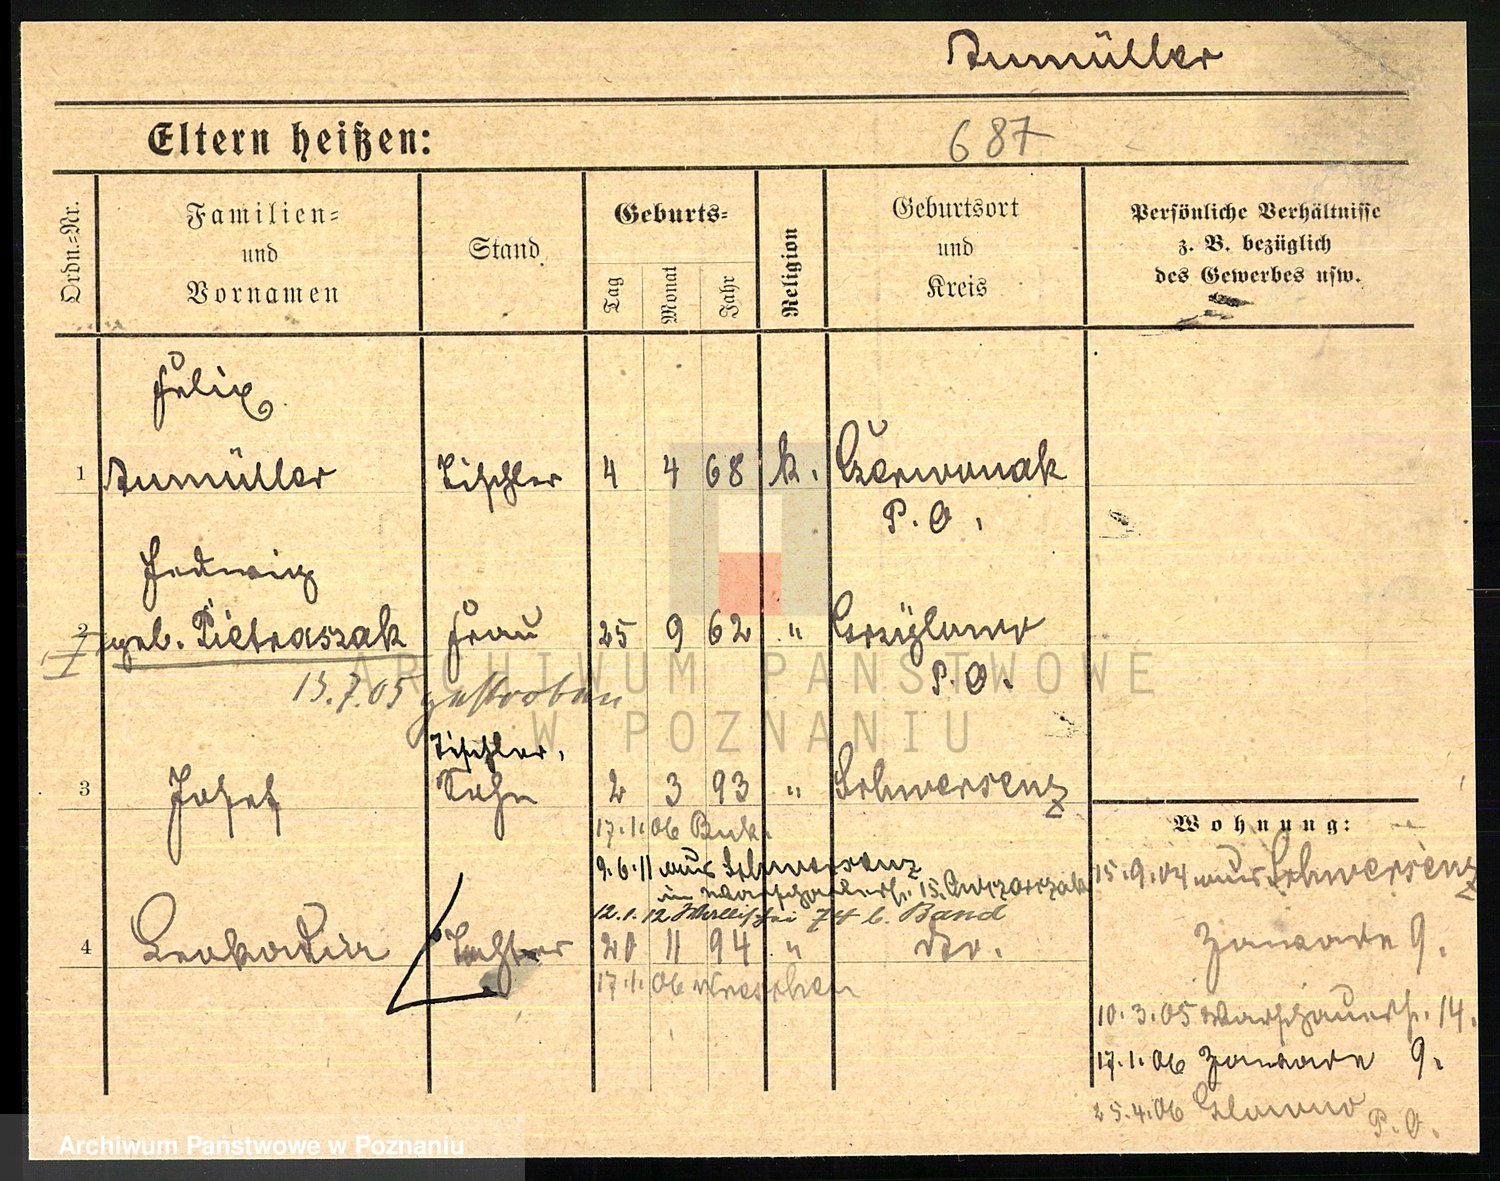 Aumüller
Eltern heißen:
687
Ordn.=Nr.
Familien=
und
Vornamen
Stand
Geburts=
Tag
Monat
Jahr
Religion
Geburtsort
und
Kreis
Persönliche Verhältnisse
z. B. bezüglich
des Gewerbes usw.
Felix
1 Aumüller Tischler 4 4 68 k. Czerwonak
P. O.
Hedwig
2 geb. Pietraszak Frau 25 9 62 "
P. O.
13.7.05 gestorben
Tischler.
3 Josef Sohn 2 3 93 " Schwersenz
17.1.06 Buk.
9.6.11 aus Schwersenz
15.
12.1.12 74 b. Band
4 Leokadia Tochter 20 11 94 " dto.
17.1.06 Wreschen
Wohnung:
15.9.04 aus Schwersenz
Zawade 9.
10.3.05 Warschauerstr. 14.
17.1.06 Zawade 9.
25.4.06 Glowno P. O.
ARCHIWUM PAŃSTWOWE
W POZNANIU
Archiwum Państwowe w Poznaniu